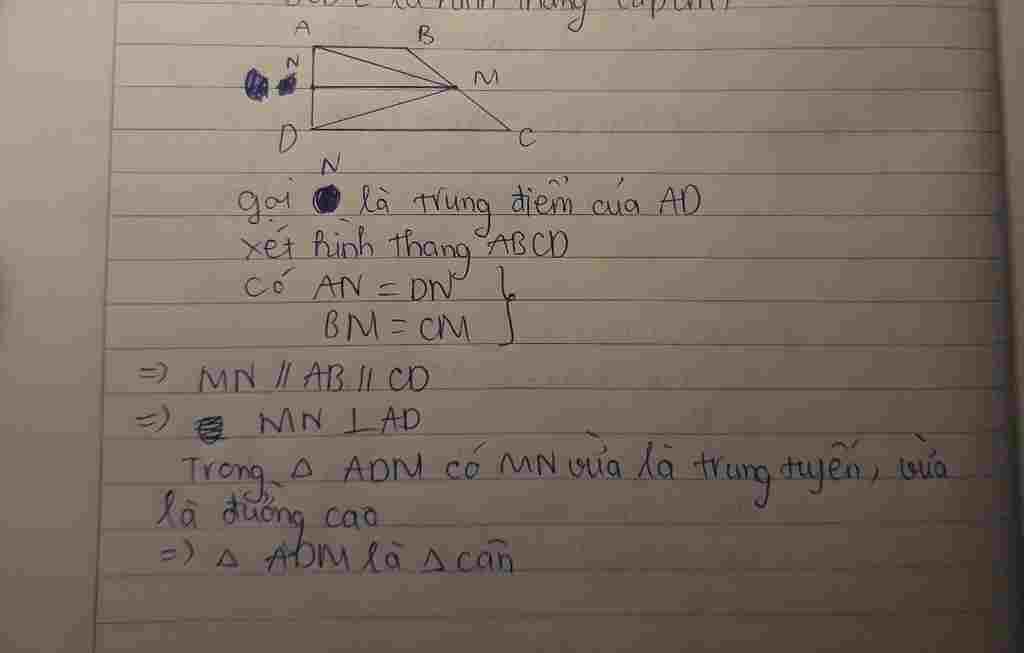 là hình thang
A
B
N
M
D
C
N
gọi là trung điểm của AD
xét hình thang ABCD
có AN = DN
BM = CM
=> MN // AB // CD
=> MN ⊥ AD
Trong △ ADM có MN vừa là trung tuyến, vừa
là đường cao
=> △ ADM là △ cân